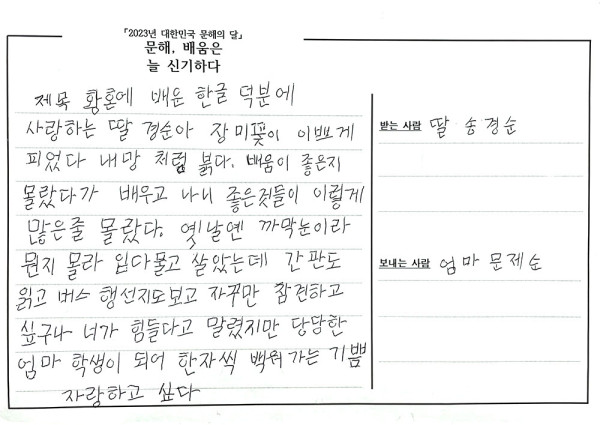 「2023년 대한민국 문해의 달」
문해, 배움은
늘 신기하다
제목 황혼에 배운 한글 덕분에
사랑하는 딸 경순아 장미꽃이 이쁘게
피었다 내망 처럼 붉다. 배움이 좋은지
몰랐다가 배우고 나니 좋은것들이 이렇게
많은줄 몰랐다. 옛날엔 까막눈이라
뭔지 몰라 입다물고 살았는데 간판도
읽고 버스 행선지도보고 자꾸만 참견하고
싶구나 너가 힘들다고 말렸지만 당당한
엄마 학생이 되어 한자씩 백워 가는 기쁨
자랑하고 싶다
받는 사람 딸 송경순
보내는 사람 엄마 문제순